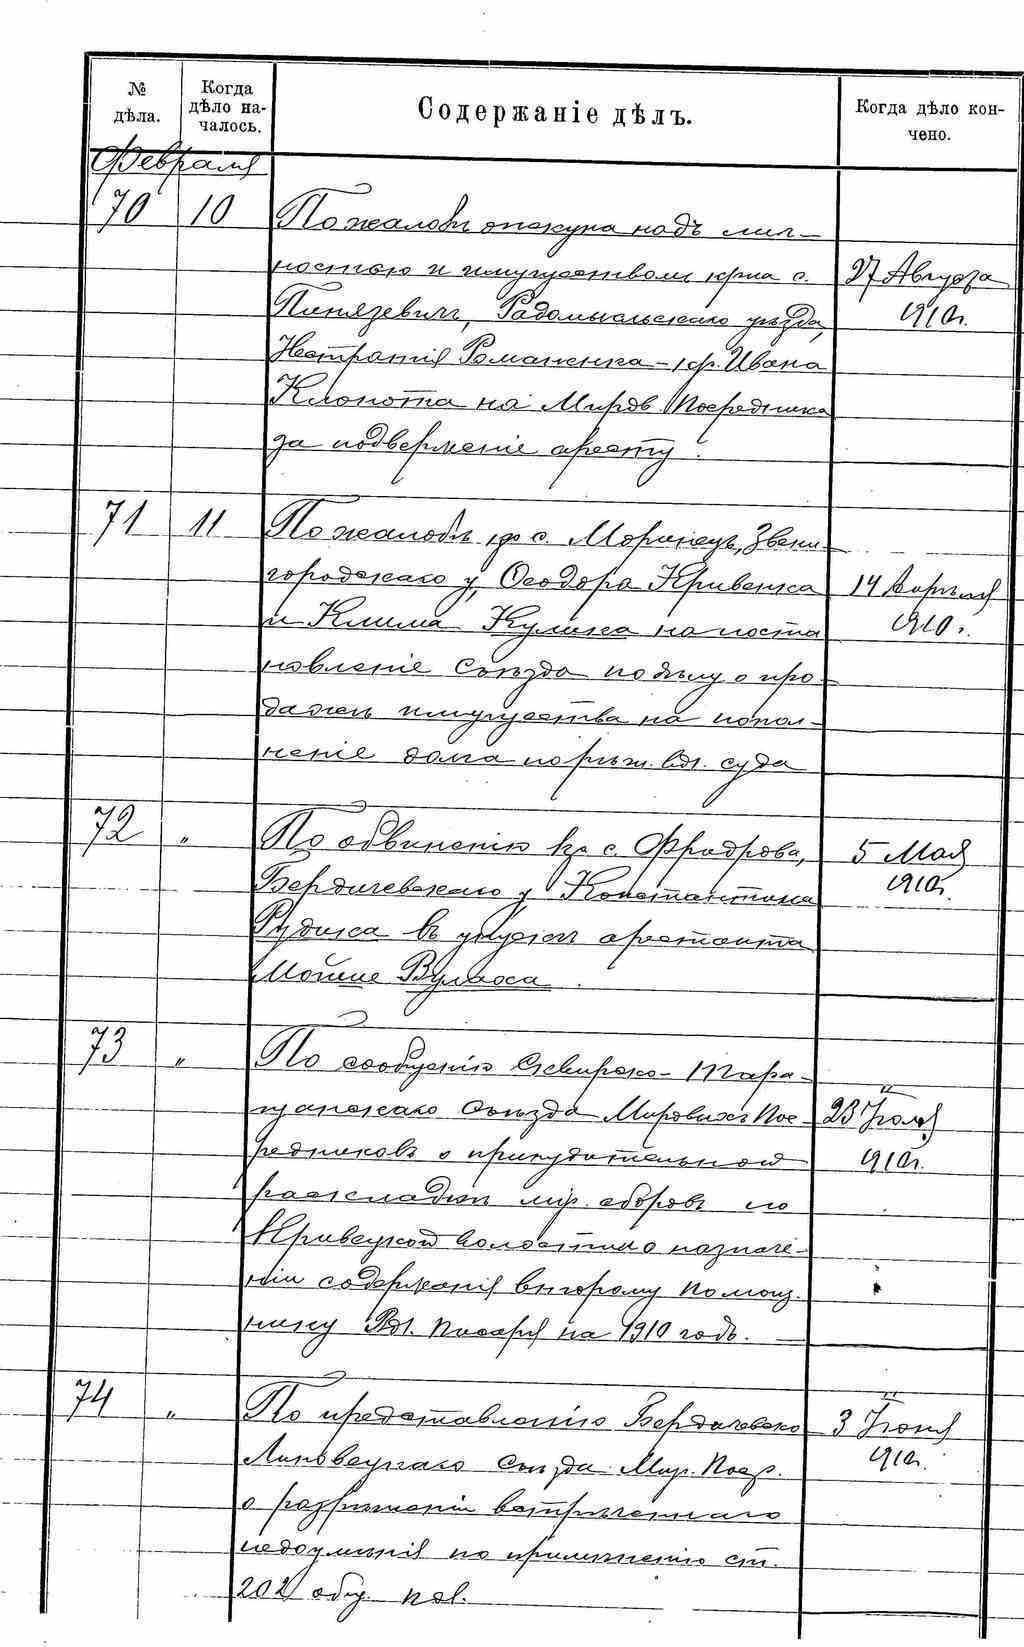 № дѣла.
Когда дѣло началось.
Содержаніе дѣлъ.
Когда дѣло кончено.
Февраля
70 10 По жалобѣ опекуна надъ лич-
ностью и имуществомъ кр-на с. 27 Августа
Пинязевичъ, Радомысльскаго уѣзда, 1910 г.
Романенка - кр. Ивана
Клопота на Миров. Посредника
за подверженіе аресту.
71 11 По жалобѣ кр с. Моринецъ, Звени-
городскаго у, Ѳеодора Кривенка 14 Апрѣля
и Клима Кулика на поста 1910 г.
новленіе Съѣзда по дѣлу о про-
дажѣ имущества на попол-
неніе долга по рѣш. вол. суда
72 " По обвиненію кр с. 5 Мая
Бердичевскаго у Константина 1910 г.
Рудика въ упускѣ арестанта
Мойше
73 " По сообщенію Сквирско-Тара-
щанскаго Съѣзда Мировыхъ Пос- 23 Іюля
редниковъ о принудительной 1910 г.
раскладкѣ мір. сборовъ по
Кривецкой волости и о назначе-
ніи содержанія второму помощ.
нику Вол. писаря на 1910 годъ.
74 " По представленію Бердичевско 3 Іюня
Липовецкаго Съѣзда Мир. Поср. 1910 г.
о разрѣшеніи встрѣченнаго
недоумѣнія по примѣненію ст.
202 общ. пол.